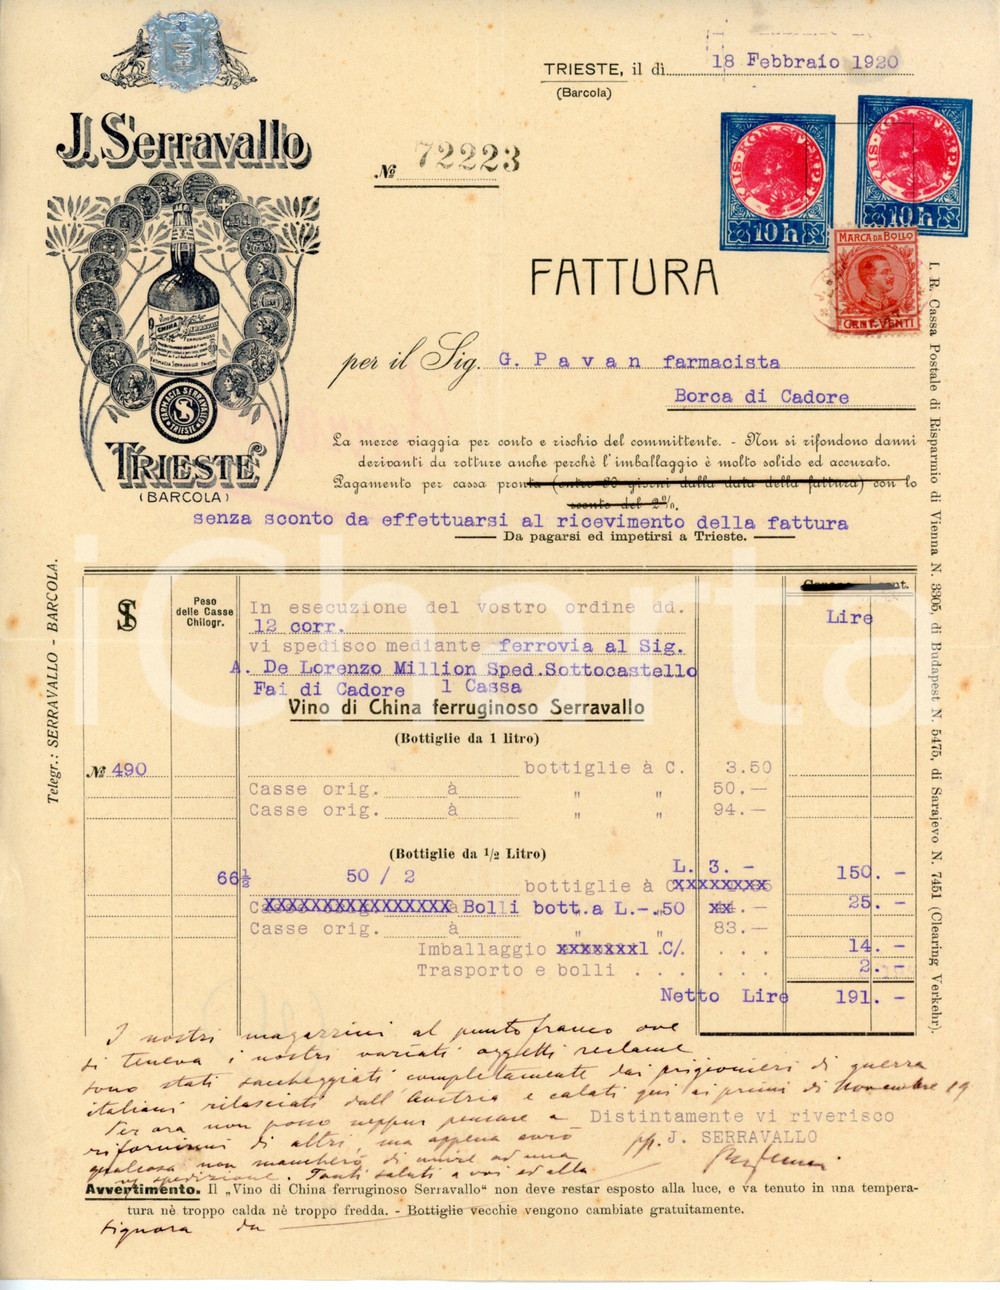 TRIESTE, il dì 18 Febbraio 1920
(Barcola)
J. Serravallo
№ 72223
KAIS·KÖN·STEMPEL
10 h
KAIS·KÖN·STEMPEL
10 h
MARCA DA BOLLO
CENT. VENTI
FATTURA
CHINA
SERRAVALLO
FARMACIA SERRAVALLO TRIESTE
FARMACIA SERRAVALLO
TRIESTE
TRIESTE
(BARCOLA)
per il Sig. G. Pavan farmacista
Borca di Cadore
La merce viaggia per conto e rischio del committente. - Non si rifondono danni
derivanti da rotture anche perchè l'imballaggio è molto solido ed accurato.
Pagamento per cassa pronta (entro 30 giorni dalla data della fattura) con lo
sconto del 2%.
senza sconto da effettuarsi al ricevimento della fattura
Da pagarsi ed impetirsi a Trieste.
I. R. Cassa Postale di Risparmio di Vienna N. 3305, di Budapest N. 5475, di Sarajevo N. 7451 (Clearing Verkehr).
Telegr.: SERRAVALLO - BARCOLA.
iCharta
Peso
delle Casse
Chilogr.
cent.
Lire
In esecuzione del vostro ordine dd.
12 corr.
vi spedisco mediante ferrovia al Sig.
A. De Lorenzo Million Sped. Sottocastello
Fai di Cadore 1 Cassa
Vino di China ferruginoso Serravallo
(Bottiglie da 1 litro)
№ 490 bottiglie à C. 3.50
Casse orig. à " " 50.—
Casse orig. à " " 94.—
(Bottiglie da 1/2 Litro)
L. 3. -
66½ 50 / 2 bottiglie à C xxxxxxxx 150. -
xxxxxxxxxxxxxxxx à Bolli bott.a L.-.50 xx.— 25. -
Casse orig. à " " 83.—
Imballaggio xxxxxxx1 C/. . . . 14. -
Trasporto e bolli . . . . . . 2. -
Netto Lire 191. -
I nostri magazzini al punto franco ove
si teneva i nostri variati oggetti reclame
sono stati saccheggiati completamente dai prigionieri di guerra
italiani rilasciati dall'Austria e calati qui ai primi di Novembre 19
Per ora non posso neppur pensare a
rifornirmi di altri, ma appena avrò
qualcosa non mancherò di unire ad una
spedizione. Tanti saluti a voi ed alla
signora da
Distintamente vi riverisco
pp. J. SERRAVALLO
Avvertimento. Il „Vino di China ferruginoso Serravallo“ non deve restar esposto alla luce, e va tenuto in una tempera-
tura nè troppo calda nè troppo fredda. - Bottiglie vecchie vengono cambiate gratuitamente.